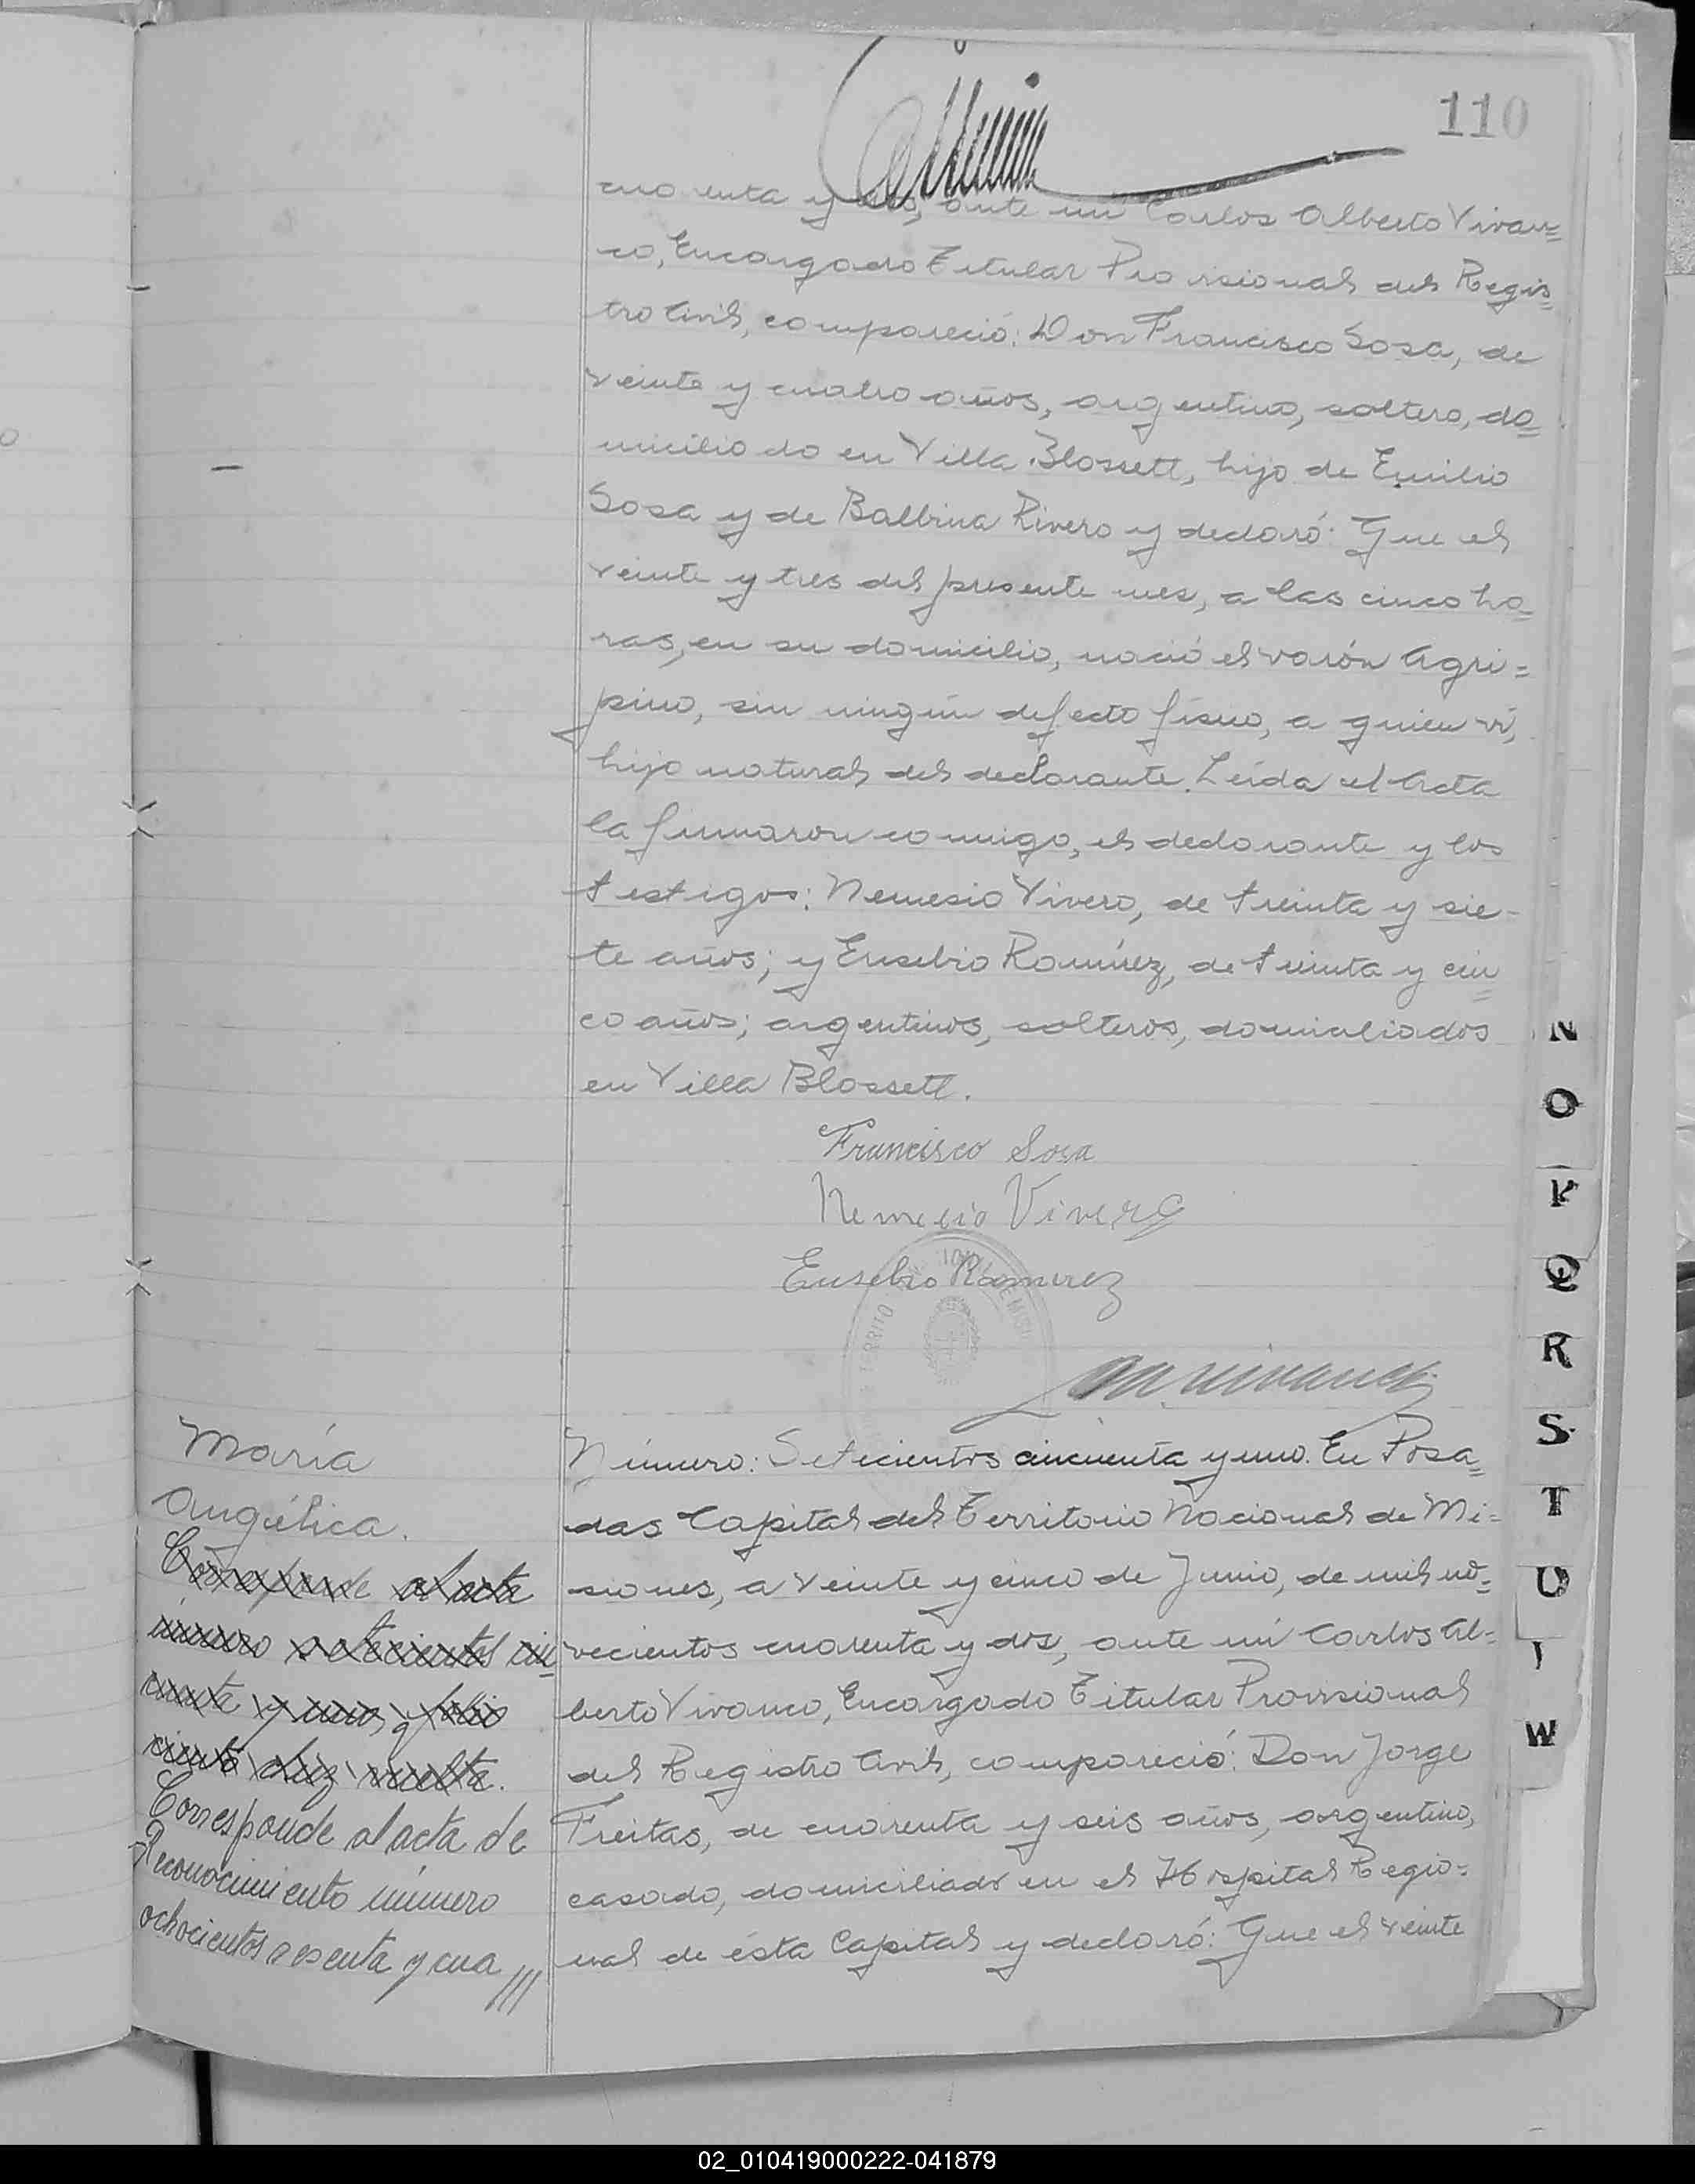 110
cuarenta y dos, ante mí Carlos Alberto Vivan=
co, Encargado Titular Provisional del Regis=
tro Civil, compareció: Don Francisco Sosa, de
veinte y cuatro años, argentino, soltero, do=
miciliado en Villa Blossett, hijo de Emilio
Sosa y de Balbina Rivero y declaró: Que el
veinte y tres del presente mes, a las cinco ho=
ras, en su domicilio, nació el varón Agri=
pino, sin ningún defecto físico, a quien ví,
hijo natural del declarante. Leída el Acta
la firmaron conmigo, el declarante y los
testigos: Nemesio Vivero, de treinta y sie-
te años; y Eusebio Ramírez, de treinta y cin=
co años; argentinos, solteros, domiciliados
en Villa Blossett.
Francisco Sosa
Nemecio Vivero
Eusebio Ramirez
María
Angélica.
Corresponde al acta
número setecientos cin=
cuenta y uno, folio
ciento diez vuelta.
Corresponde al acta de
Reconocimiento número
ochocientos sesenta y cua ///
Número: Setecientos cincuenta y uno. En Posa=
das Capital del Territorio Nacional de Mi=
siones, a veinte y cinco de Junio, de mil no=
vecientos cuarenta y dos, ante mí Carlos Al=
berto Vivanco, Encargado Titular Provisional
del Registro Civil, compareció: Don Jorge
Freitas, de cuarenta y seis años, argentino,
casado, domiciliado en el Hospital Regio=
nal de ésta Capital y declaró: Que el veinte
N
O
P
Q
R
S
T
U
W
02_010419000222-041879